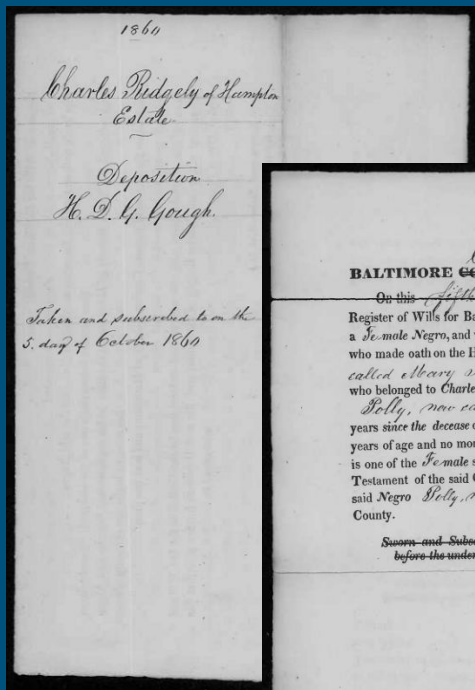 1860
Charles Ridgely of Hampton
Estate
Deposition
H. D. G. Gough.
Taken and subscribed to on the
5. day of October 1860
BALTIMORE
On this fifth
Register of Wills for Ba
a Female Negro, and
who made oath on the H
called Mary
who belonged to Charle
Polly, now ca
years since the decease o
years of age and no mor
is one of the Female s
Testament of the said C
said Negro Polly, n
County.
Sworn and Subsc
before the under